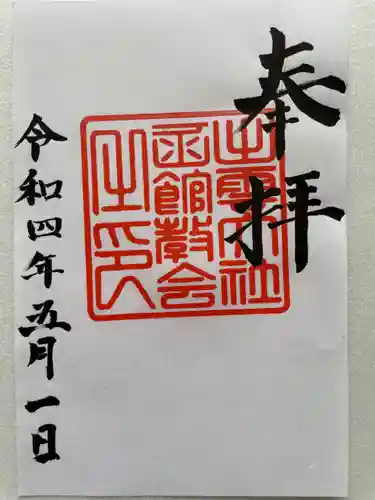 奉拝
出雲大社
函館教会
之印
令和四年五月一日